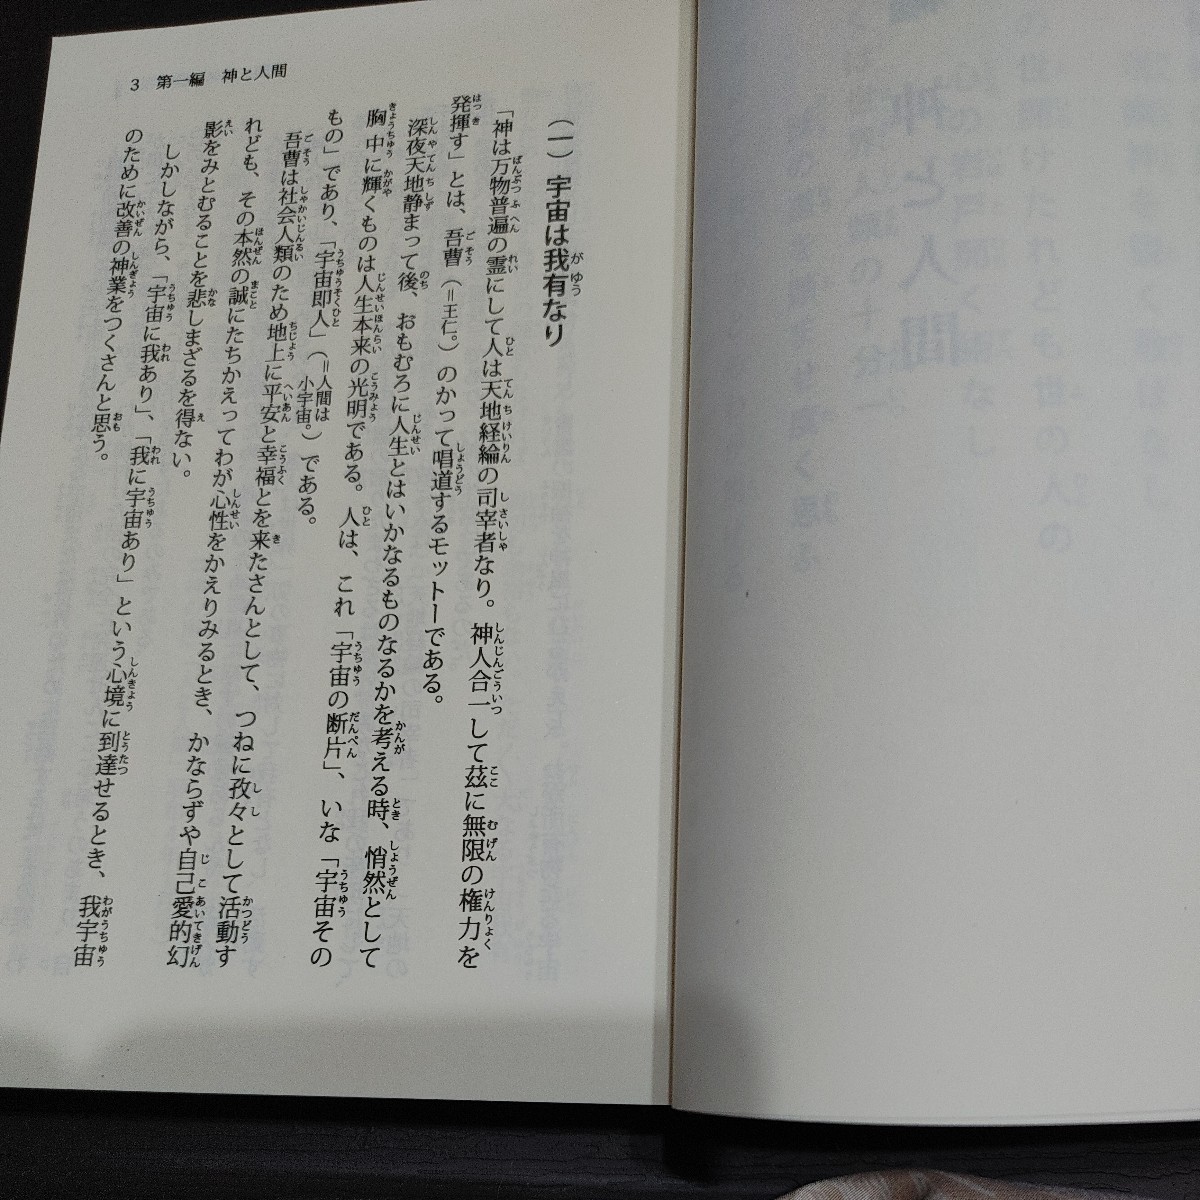 3　第一編　神と人間
（一）宇宙は我有なり
「神は万物普遍の霊にして人は天地経綸の司宰者なり。神人合一して茲に無限の権力を
発揮す」とは、吾曹（＝王仁。）のかって唱道するモットーである。
深夜天地静まって後、おもむろに人生とはいかなるものなるかを考える時、悄然として
胸中に輝くものは人生本来の光明である。人は、これ「宇宙の断片」、いな「宇宙その
もの」であり、「宇宙即人」（＝人間は小宇宙。）である。
吾曹は社会人類のため地上に平安と幸福とを来たさんとして、つねに孜々として活動す
れども、その本然の誠にたちかえってわが心性をかえりみるとき、かならずや自己愛的幻
影をみとむることを悲しまざるを得ない。
しかしながら、「宇宙に我あり」、「我に宇宙あり」という心境に到達せるとき、我宇宙
のために改善の神業をつくさんと思う。
神と人間